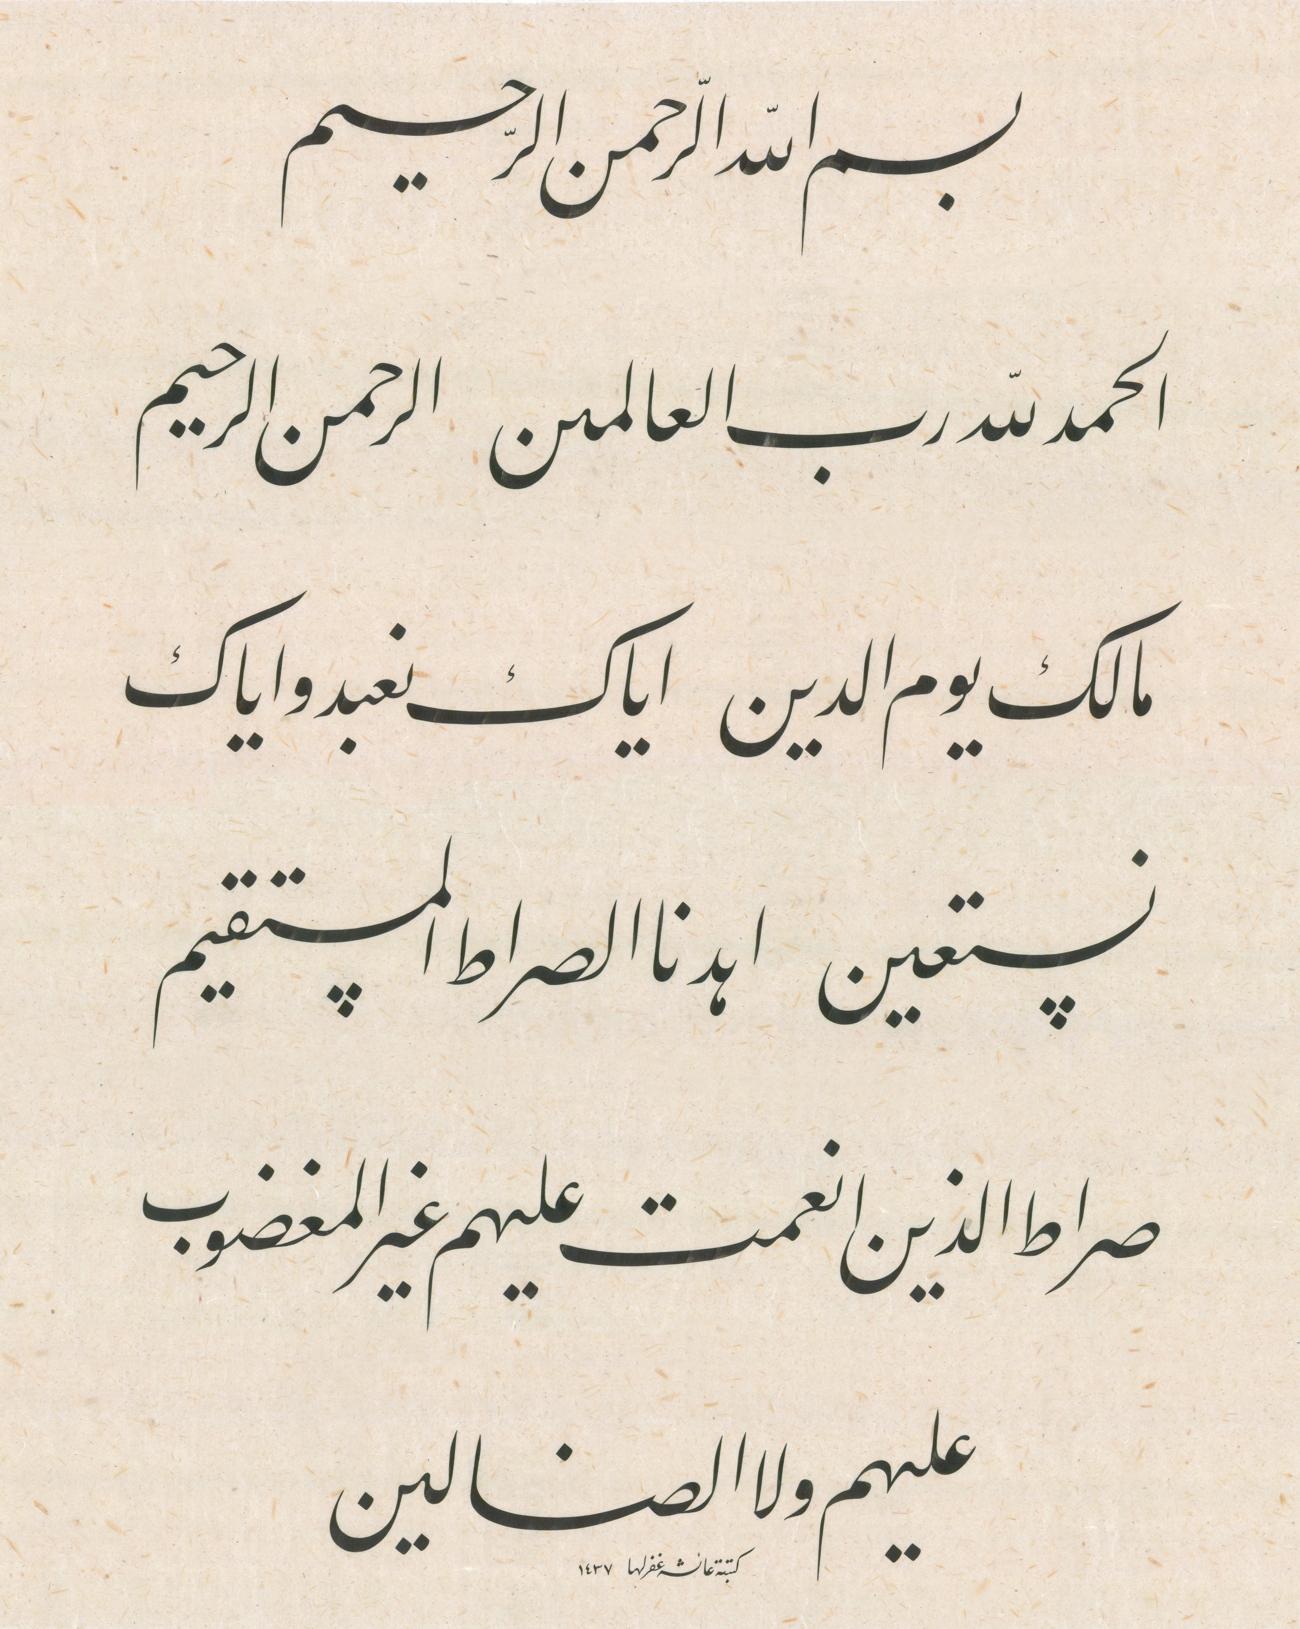 بسم اللّه الرّحمن الرّحيم
الحمد للّه رب العالمين الرحمن الرحيم
مالك يوم الدين اياك نعبد واياك
نستعين اهدنا الصراط المستقيم
صراط الذين انعمت عليهم غير المغضوب
عليهم ولا الضالين
كتبته عائشه غفرلها ١٤٣٧